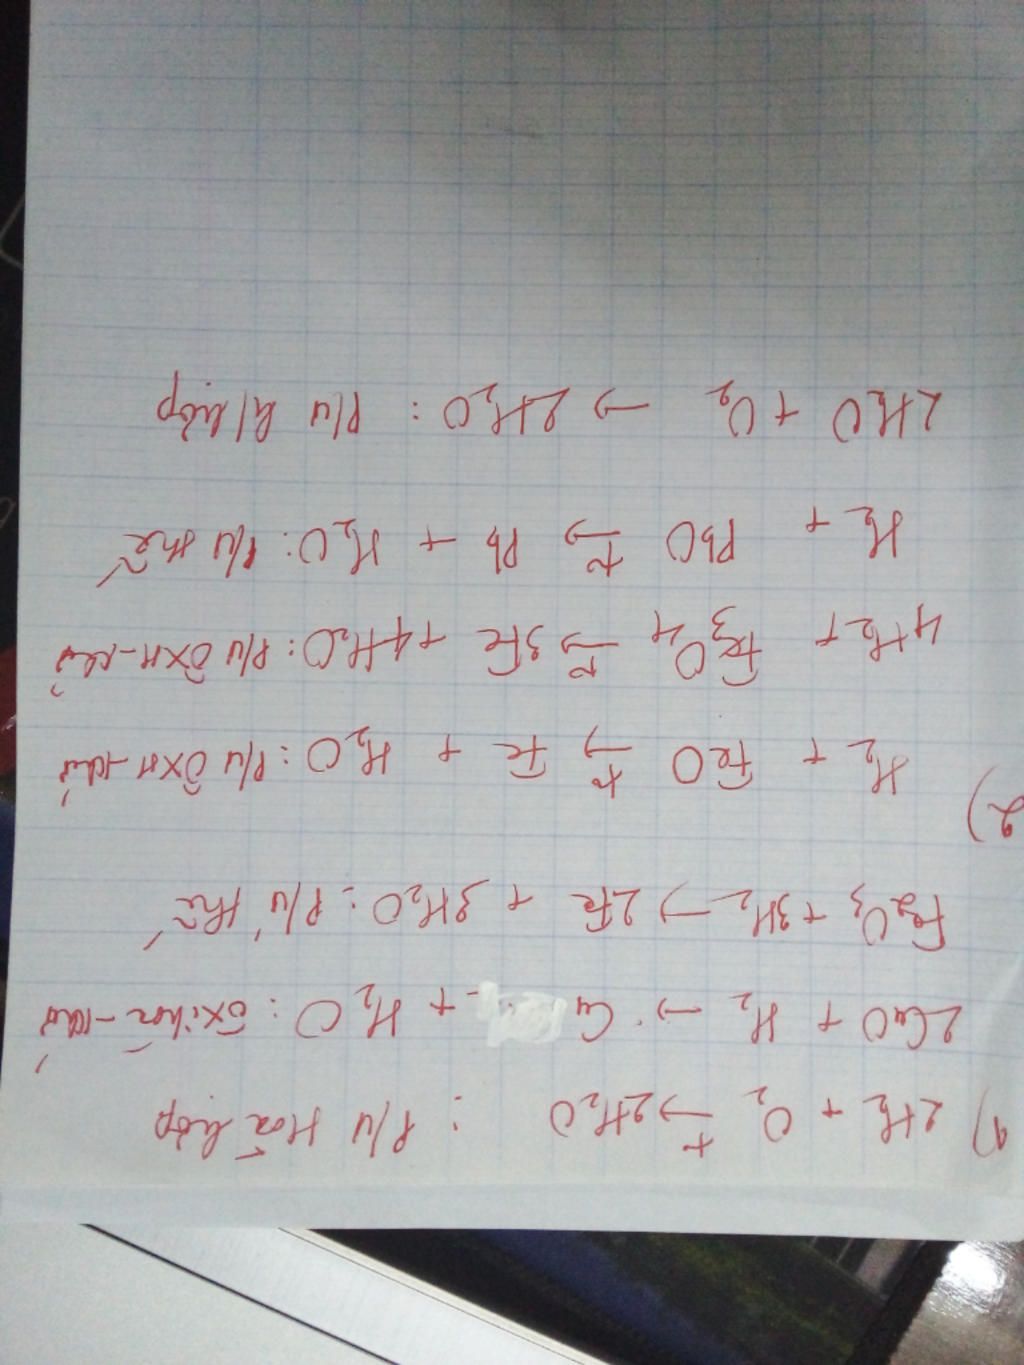 1) 2H₂ + O₂ →t° 2H₂O : P/ư Hoá hợp
2CuO + H₂ → Cu + H₂O : ôxihoá-khử
Fe₂O₃ + 3H₂ → 2Fe + 3H₂O : P/ư thế
2) H₂ + FeO →t° Fe + H₂O : P/ư ôxh-khử
4H₂ + Fe₃O₄ →t° 3Fe + 4H₂O : P/ư ôxh-khử
H₂ + PbO →t° Pb + H₂O : P/ư thế
2H₂O + O₂ → 2H₂O : P/ư h/hợp